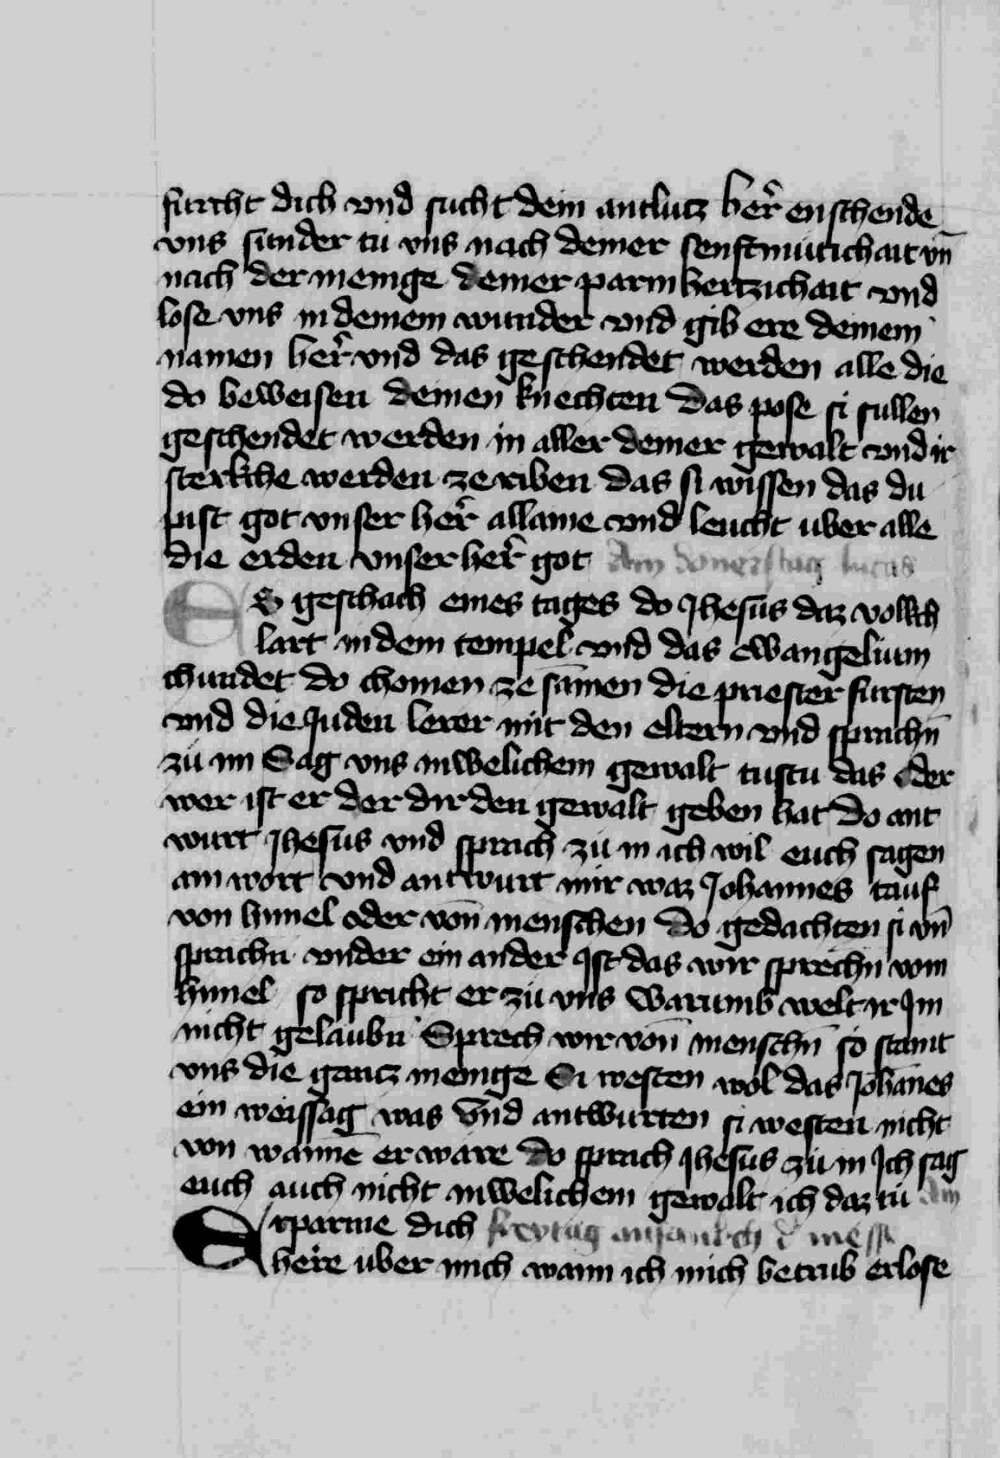 furcht dich vnd sucht dein antlutz her̄ enschende
vns sunder tu vns nach deiner senftmutichait vn̄
nach der menige deiner parmhertzichait vnd
lose vns in deinem wunder vnd gib ere deinem
namen her̄ vnd das geschendet werden alle die
do beweisen deinen knechten das pose si sullen
geschendet werden in aller deiner gewalt vnd ir
sterkche werden zeriben das si wissen das du
pist got vnser her̄ allaine vnd leucht uber alle
die erden vnser her̄ got Am donerstag lucas
Es geschach eines tages do Jhesus daz volkch
lart in dem tempel vnd das ewangelium
chundet do chomen zesāmen die priester fursten
vnd die Juden lerer mit den eltern vnd sprachn̄
zu im Sag vns in welichem gewalt tustu das oder
wer ist er der dir den gewalt geben hat Do ant
wurt Jhesus vnd sprach zu in ich wil euch sagen
ain wort vnd antwurt mir waz Johannes tauf
von himel oder von̄ menschen Do gedachten si vn̄
sprachn vnder ein ander Ist das wir sprechn vom
himel so spricht er zu vns Warumb welt ir Im
nicht gelaubn Sprech wir von̄ menschn̄ so staint
vns die gantz menige Si westen wol das Johānes
ein weissag was Vnd antwurten si westen nicht
von wannē er ware do sprach Jhesus zu in Ich sag
euch auch nicht in welichem gewalt ich daz tu Am
Erparme dich freytag anfanckch d mess
here uber mich wann ich mich betrub erlose